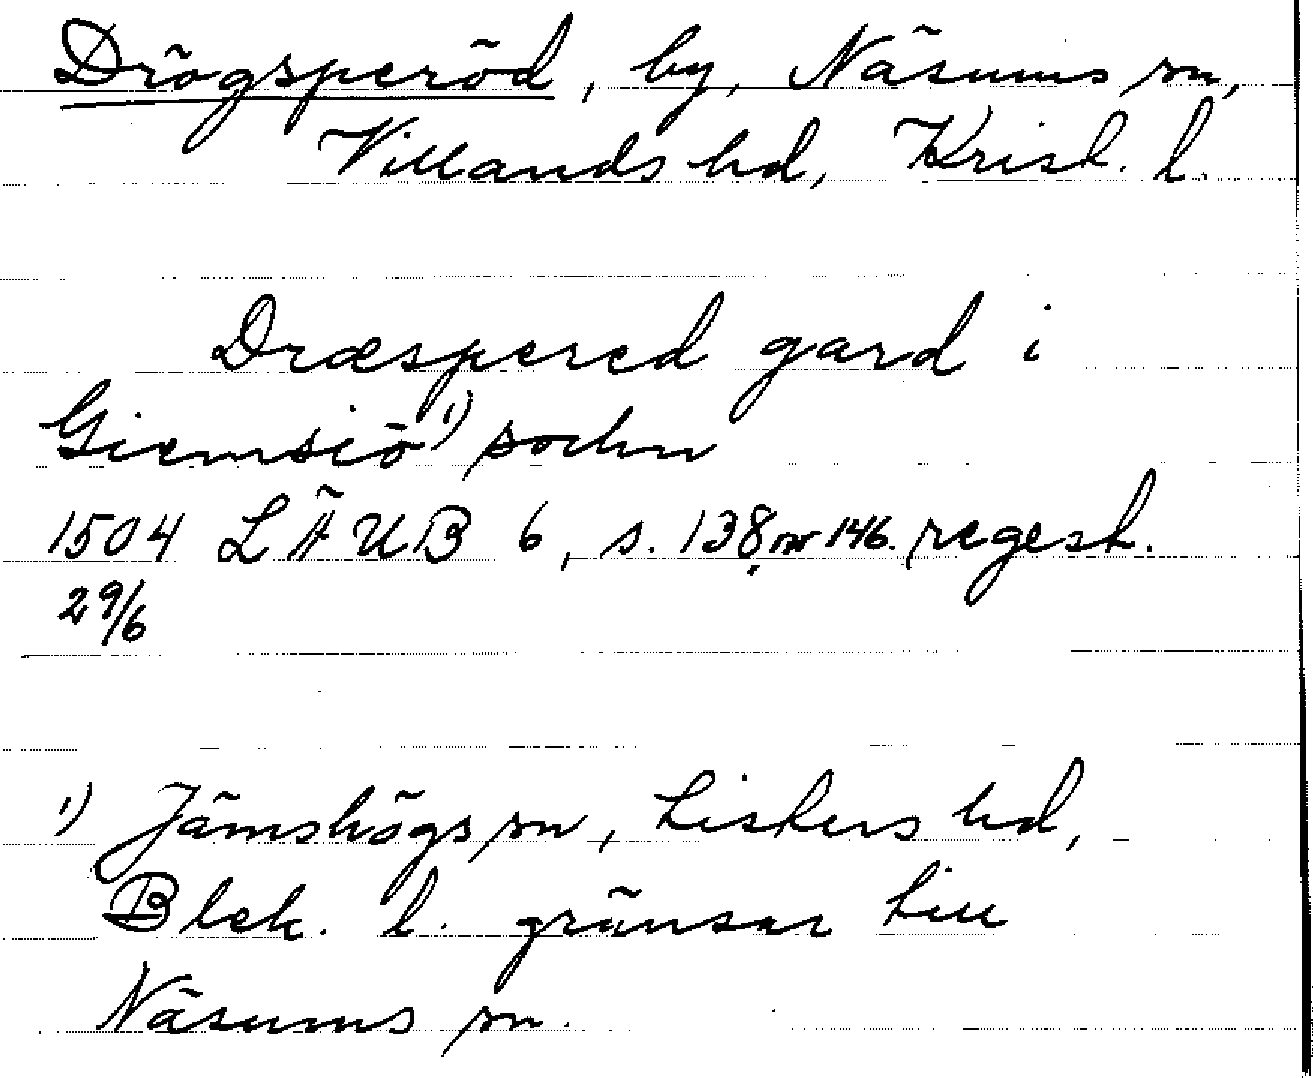 Drögsperöd, by, Näsums sn,
Villands hd, Krist. l.
Dræspered gard i
Giemsiö 1) sochn
1504 LÄUB 6, s. 138, nr 146. regest.
29/6
1) Jämshögs sn, Listers hd,
Blek. l. gränsar till
Näsums sn.